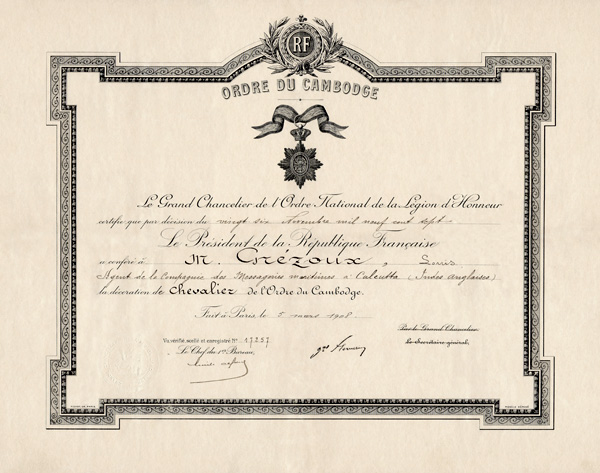 RF
ORDRE DU CAMBODGE
Le Grand Chancelier de l'Ordre National de la Légion d'Honneur
certifie que par décision du vingt six Novembre mil neuf cent sept
Le Président de la République Française
a conféré à M. Grézoux, Louis
Agent de la Compagnie des Messageries maritimes à Calcutta (Indes Anglaises)
la décoration de Chevalier de l'Ordre du Cambodge.
Fait à Paris, le 5 mars 1908
Vu, vérifié, scellé et enregistré N° 17257
Le Chef du 1er Bureau,
Par le Grand Chancelier:
Le Secrétaire général,